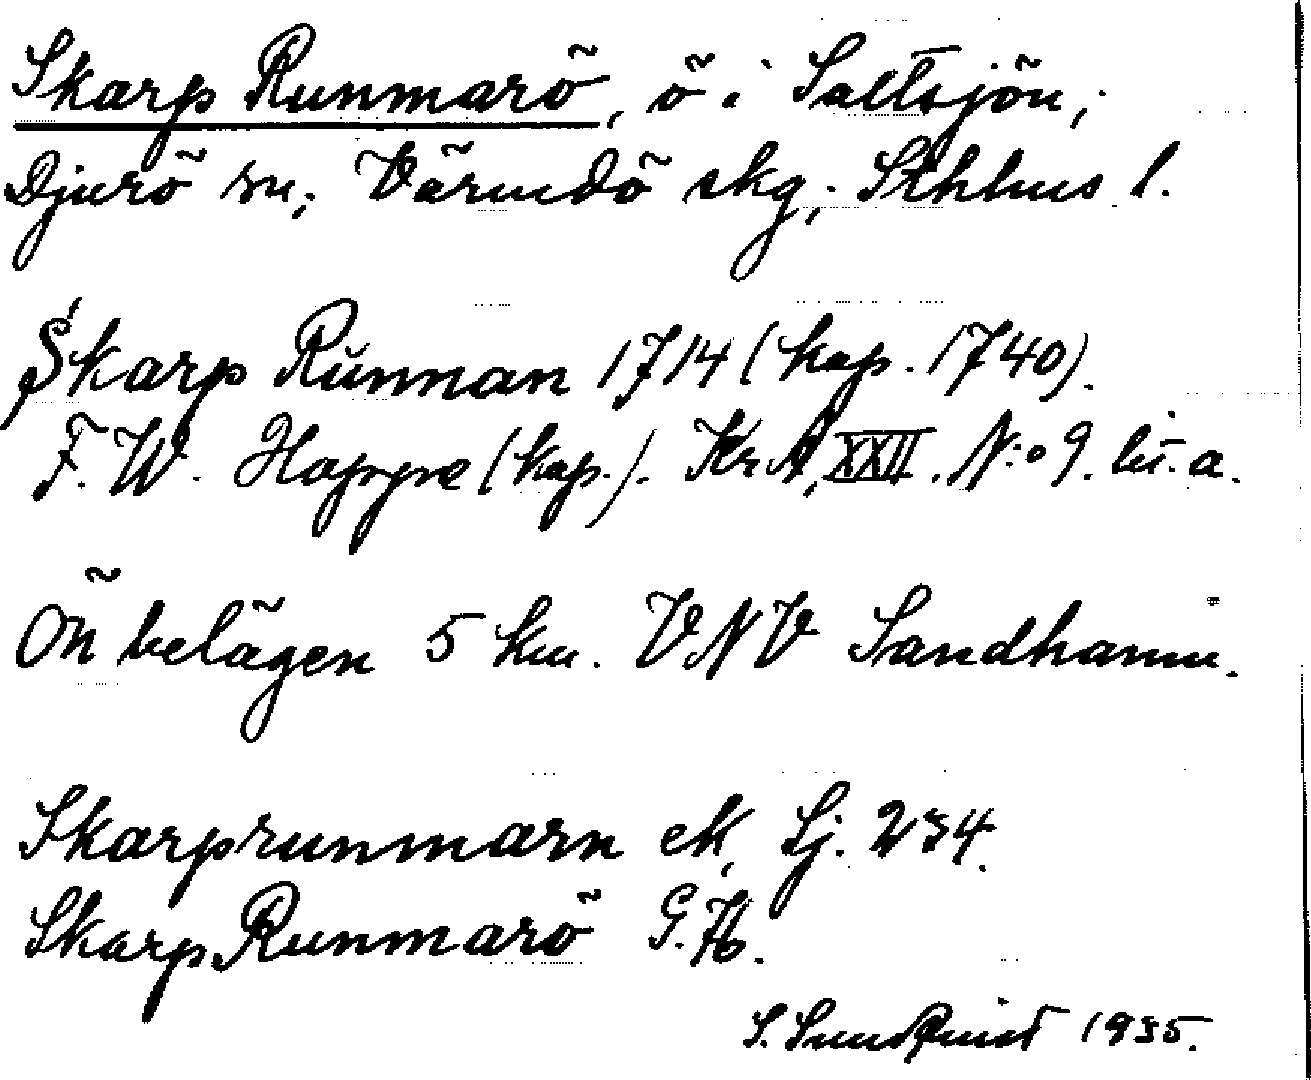 Skarp Runmarö, ö i Saltsjön,
Djurö sn; Värmdö skg; Sthlms l.
Skarp Runnan 1714 (kop. 1740).
F. W. Hoppe (kop.). KrA, XXII. N:o 9. lit. a.
Ön belägen 5 km. VNV Sandhamn.
Skarprunmarn ek, Lj. 234.
Skarp Runmarö G. Kb.
S. Sundquist 1935.